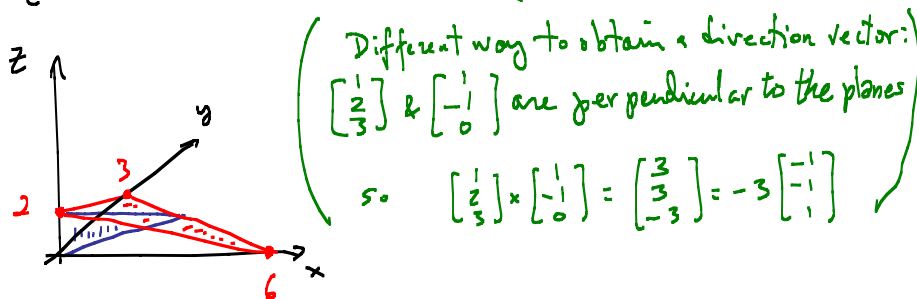 Different way to obtain a direction vector:
[1 2 3] & [1 -1 0] are perpendicular to the planes
so [1 2 3] × [1 -1 0] = [3 3 -3] = -3 [-1 -1 1]
z
y
3
2
x
6